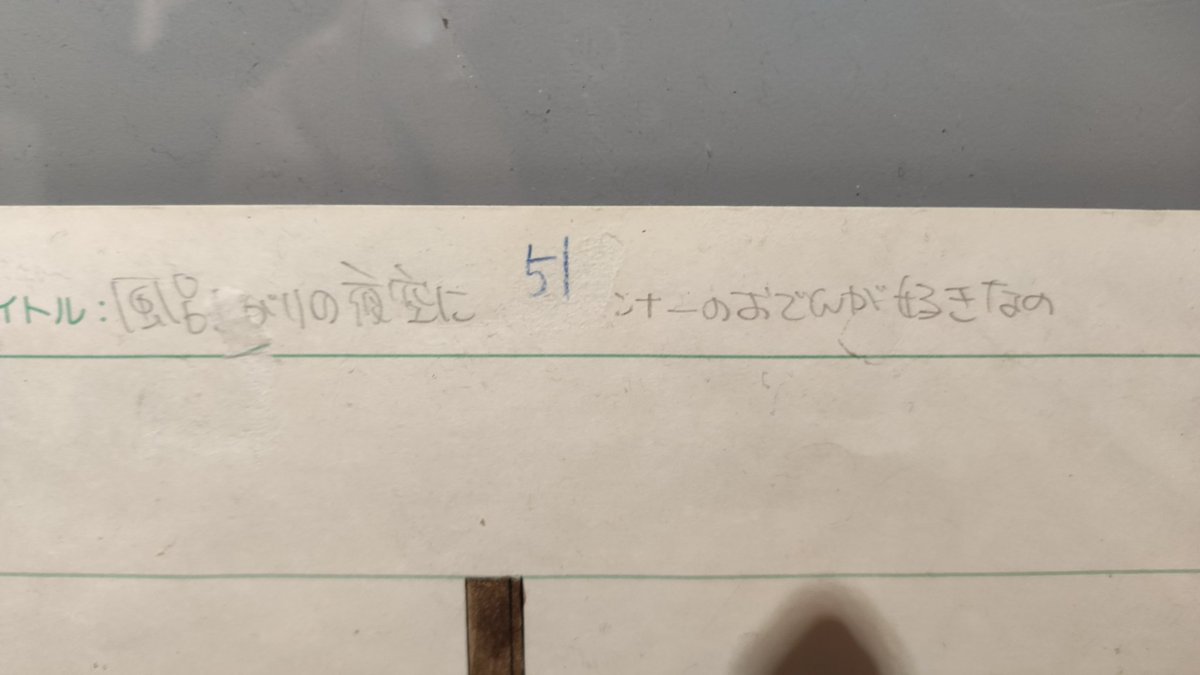 イトル:風呂 がりの夜空に 51 ナーのおでんが好きなの